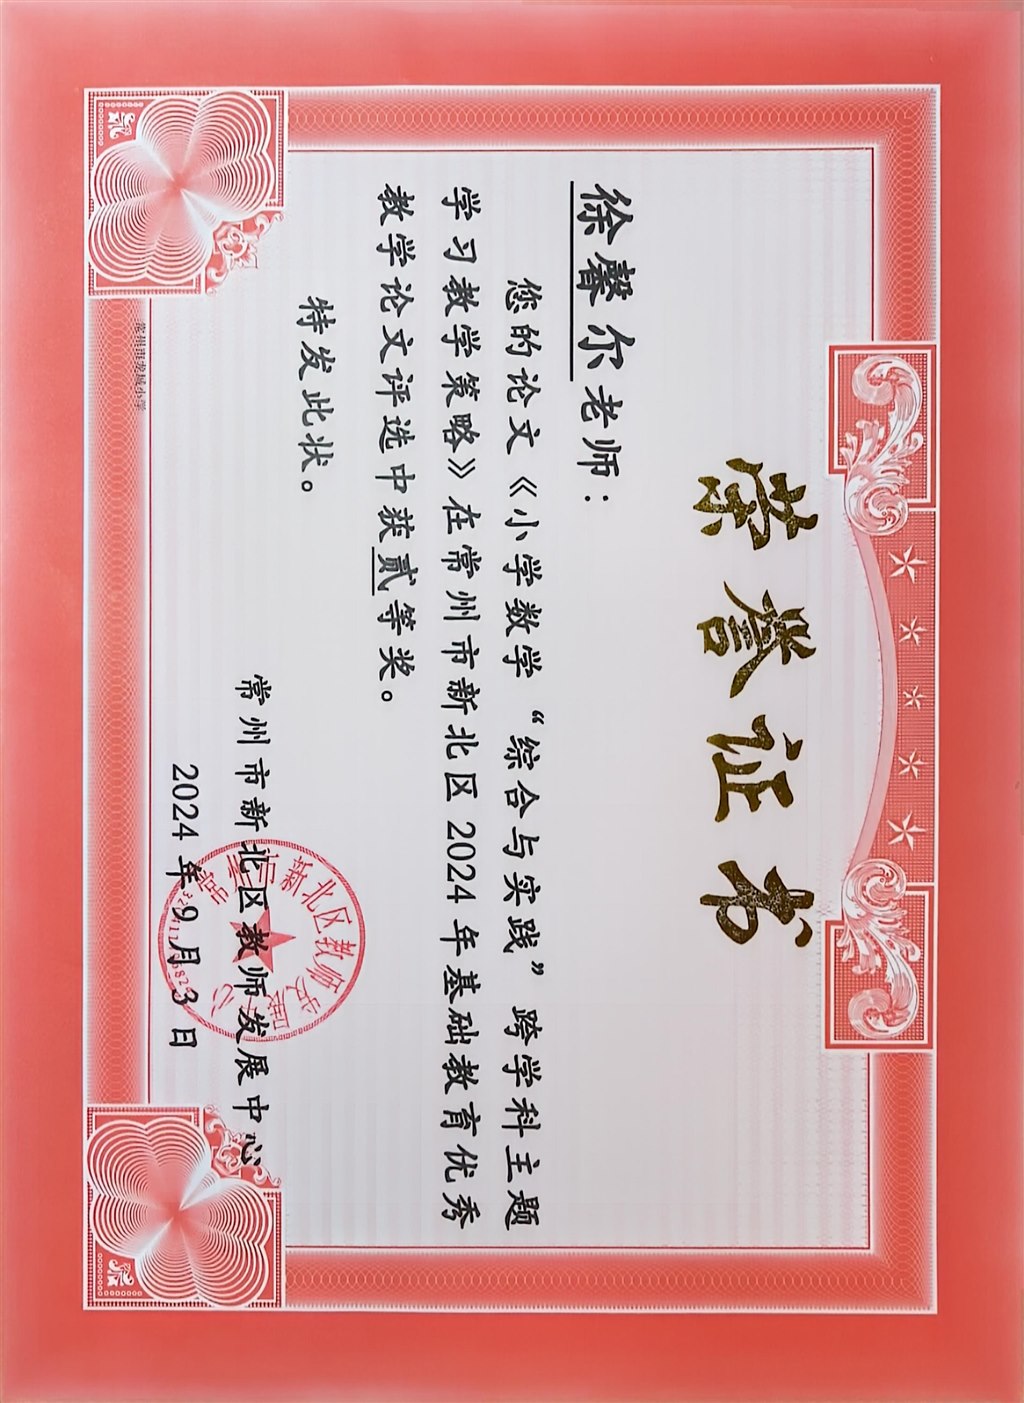 荣誉证书
徐馨尔老师：
您的论文《小学数学“综合与实践”跨学科主题
学习教学策略》在常州市新北区2024年基础教育优秀
教学论文评选中获贰等奖。
特发此状。
常州市新北区教师发展中心
2024年9月3日
常州市新北区教师发展中心
常州市龙城小学